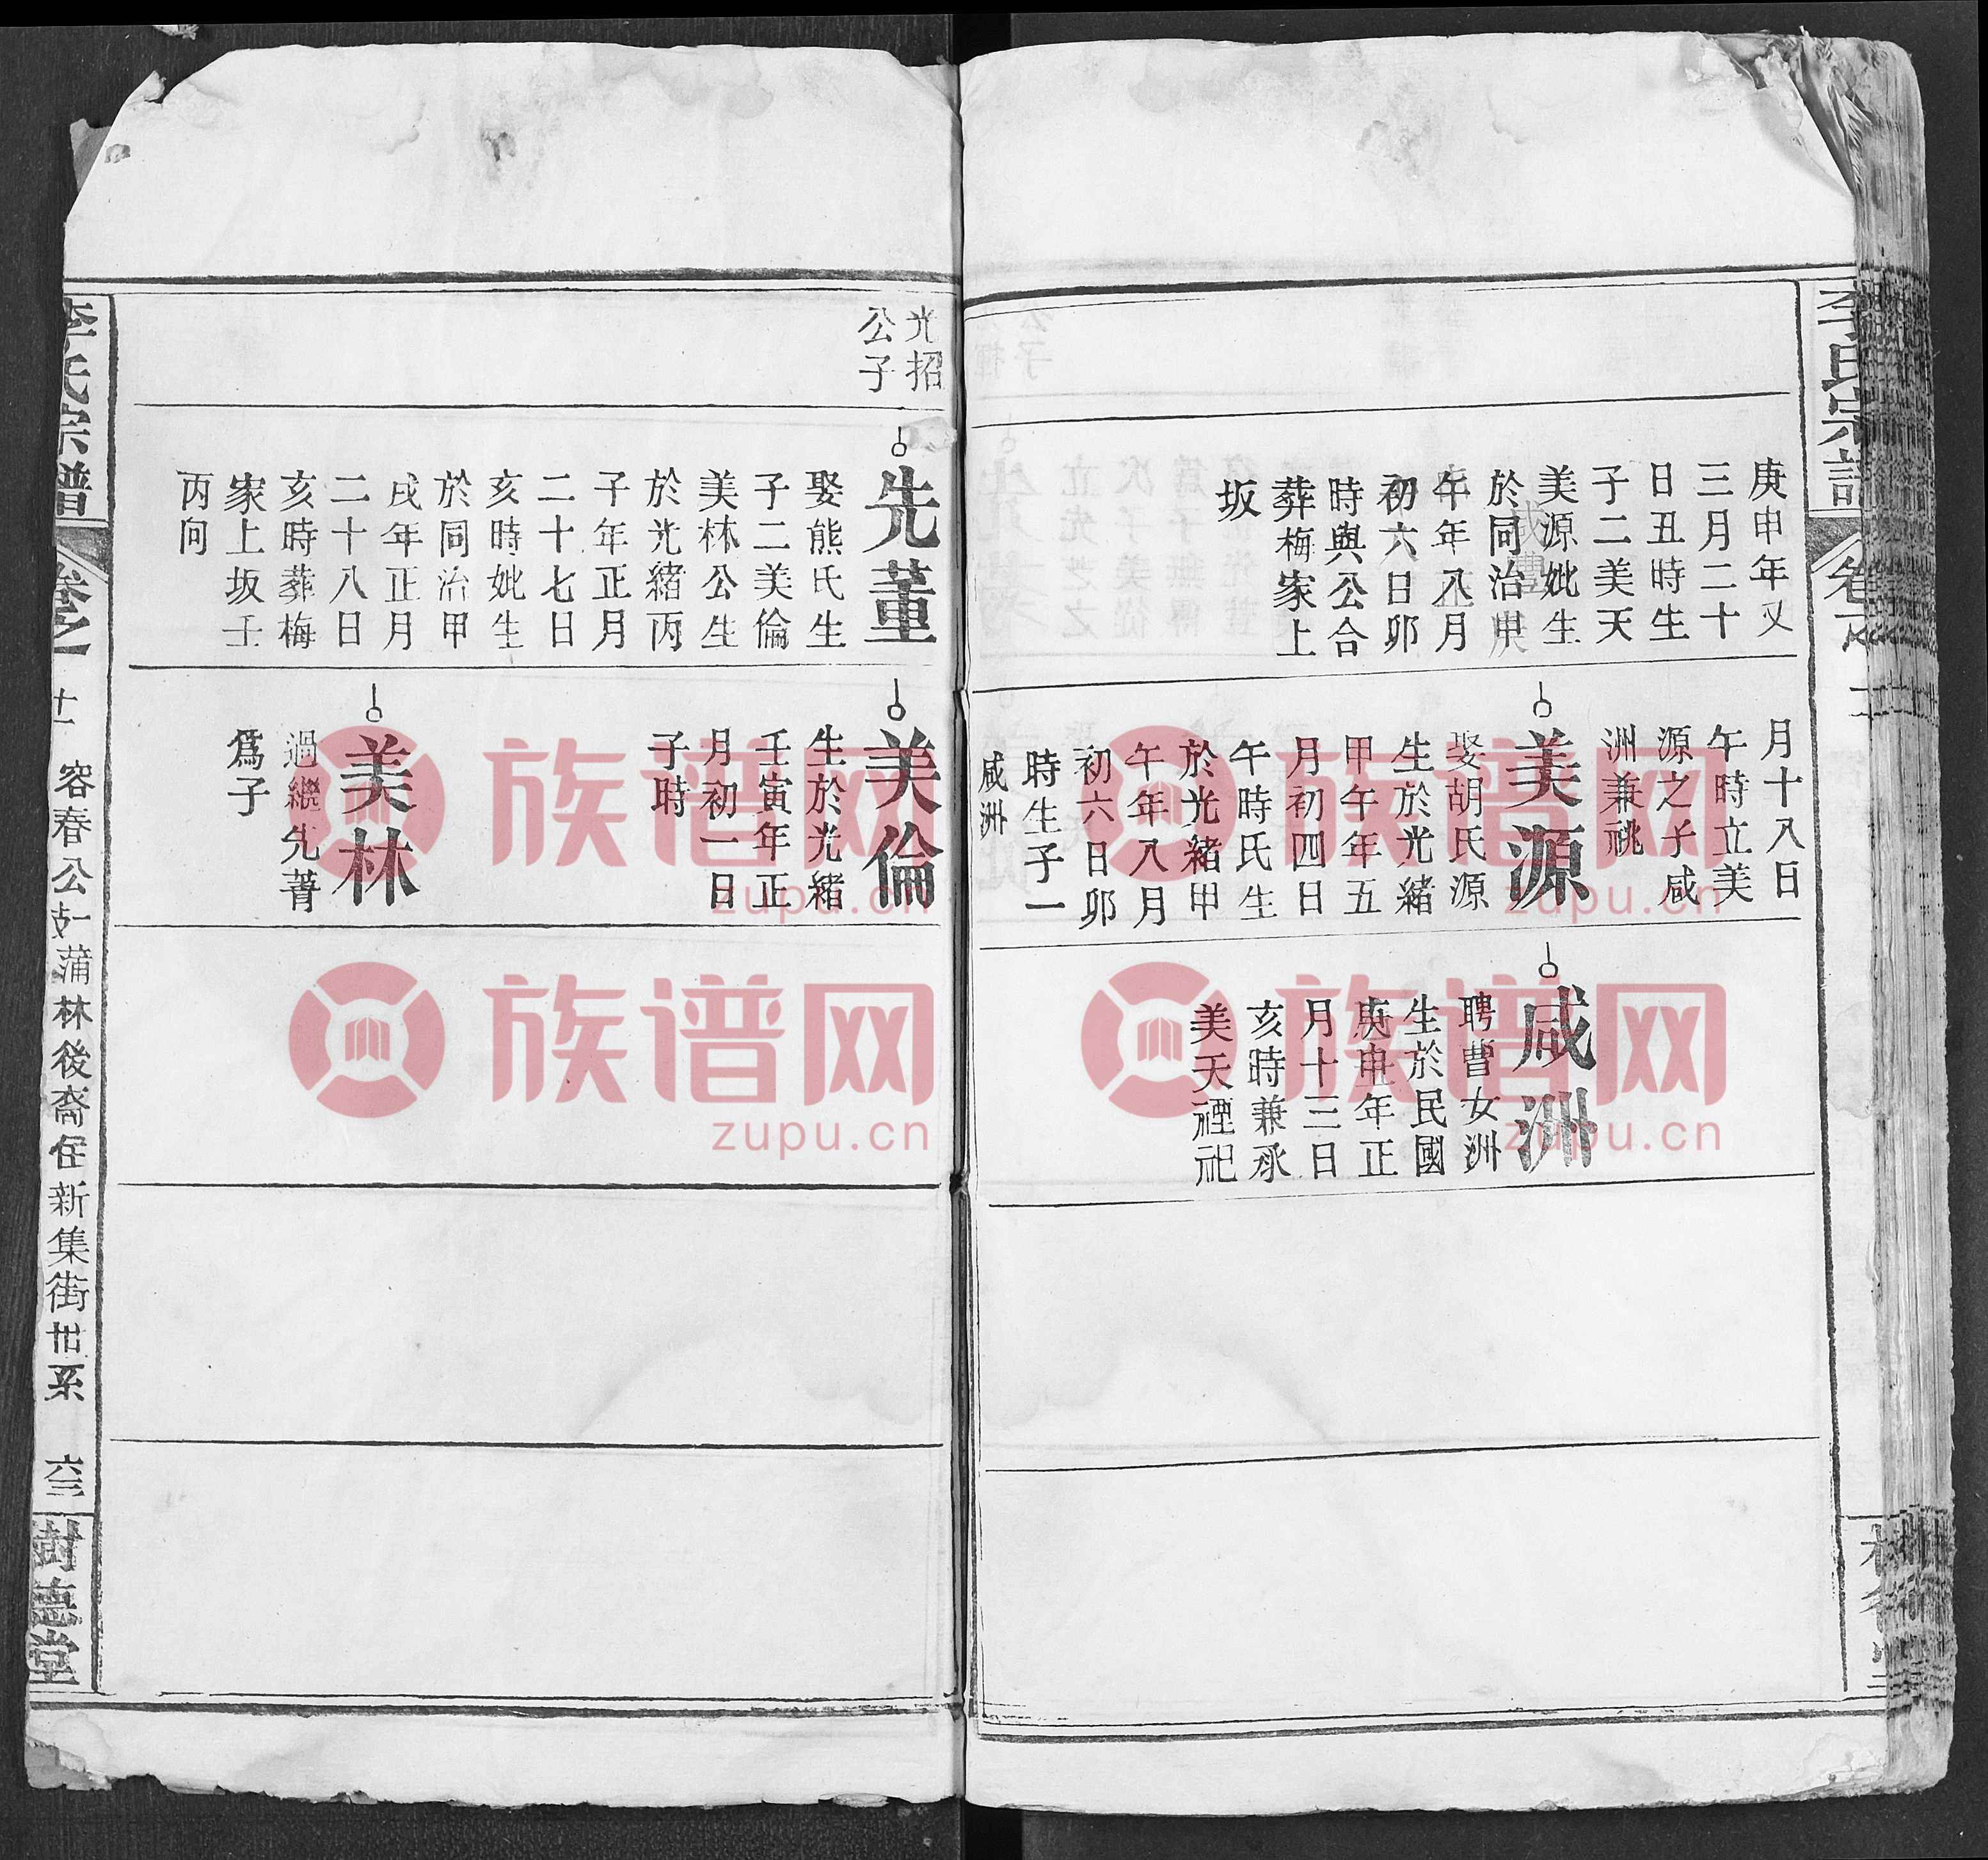 李氏宗譜
庚申年又
三月二十
日丑時生
子二美天
美源妣生
於同治
午年八月
初六日卯
時與公合
葬梅家上
坂
月十八日
午時立美
源之子咸
洲兼祧
美源
娶胡氏源
生於光緒
甲午年五
月初四日
午時氏生
於光緒甲
午年八月
初六日卯
時生子一
咸洲
咸洲
聘曹女洲
生於民國
庚申年正
月十三日
亥時兼承
美天禋祀
光招
公子
先董
娶熊氏生
子二美倫
美林公生
於光緒丙
子年正月
二十七日
亥時妣生
於同治甲
戌年正月
二十八日
亥時葬梅
家上坂壬
丙向
美倫
生於光緒
壬寅年正
月初一日
子時
美林
過繼先菁
爲子
李氏宗譜
卷之十一
容春公支蒲林後裔住新集街世系
六三
樹德堂
族谱网
zupu.cn
族谱网
zupu.cn
族谱网
zupu.cn
族谱网
zupu.cn